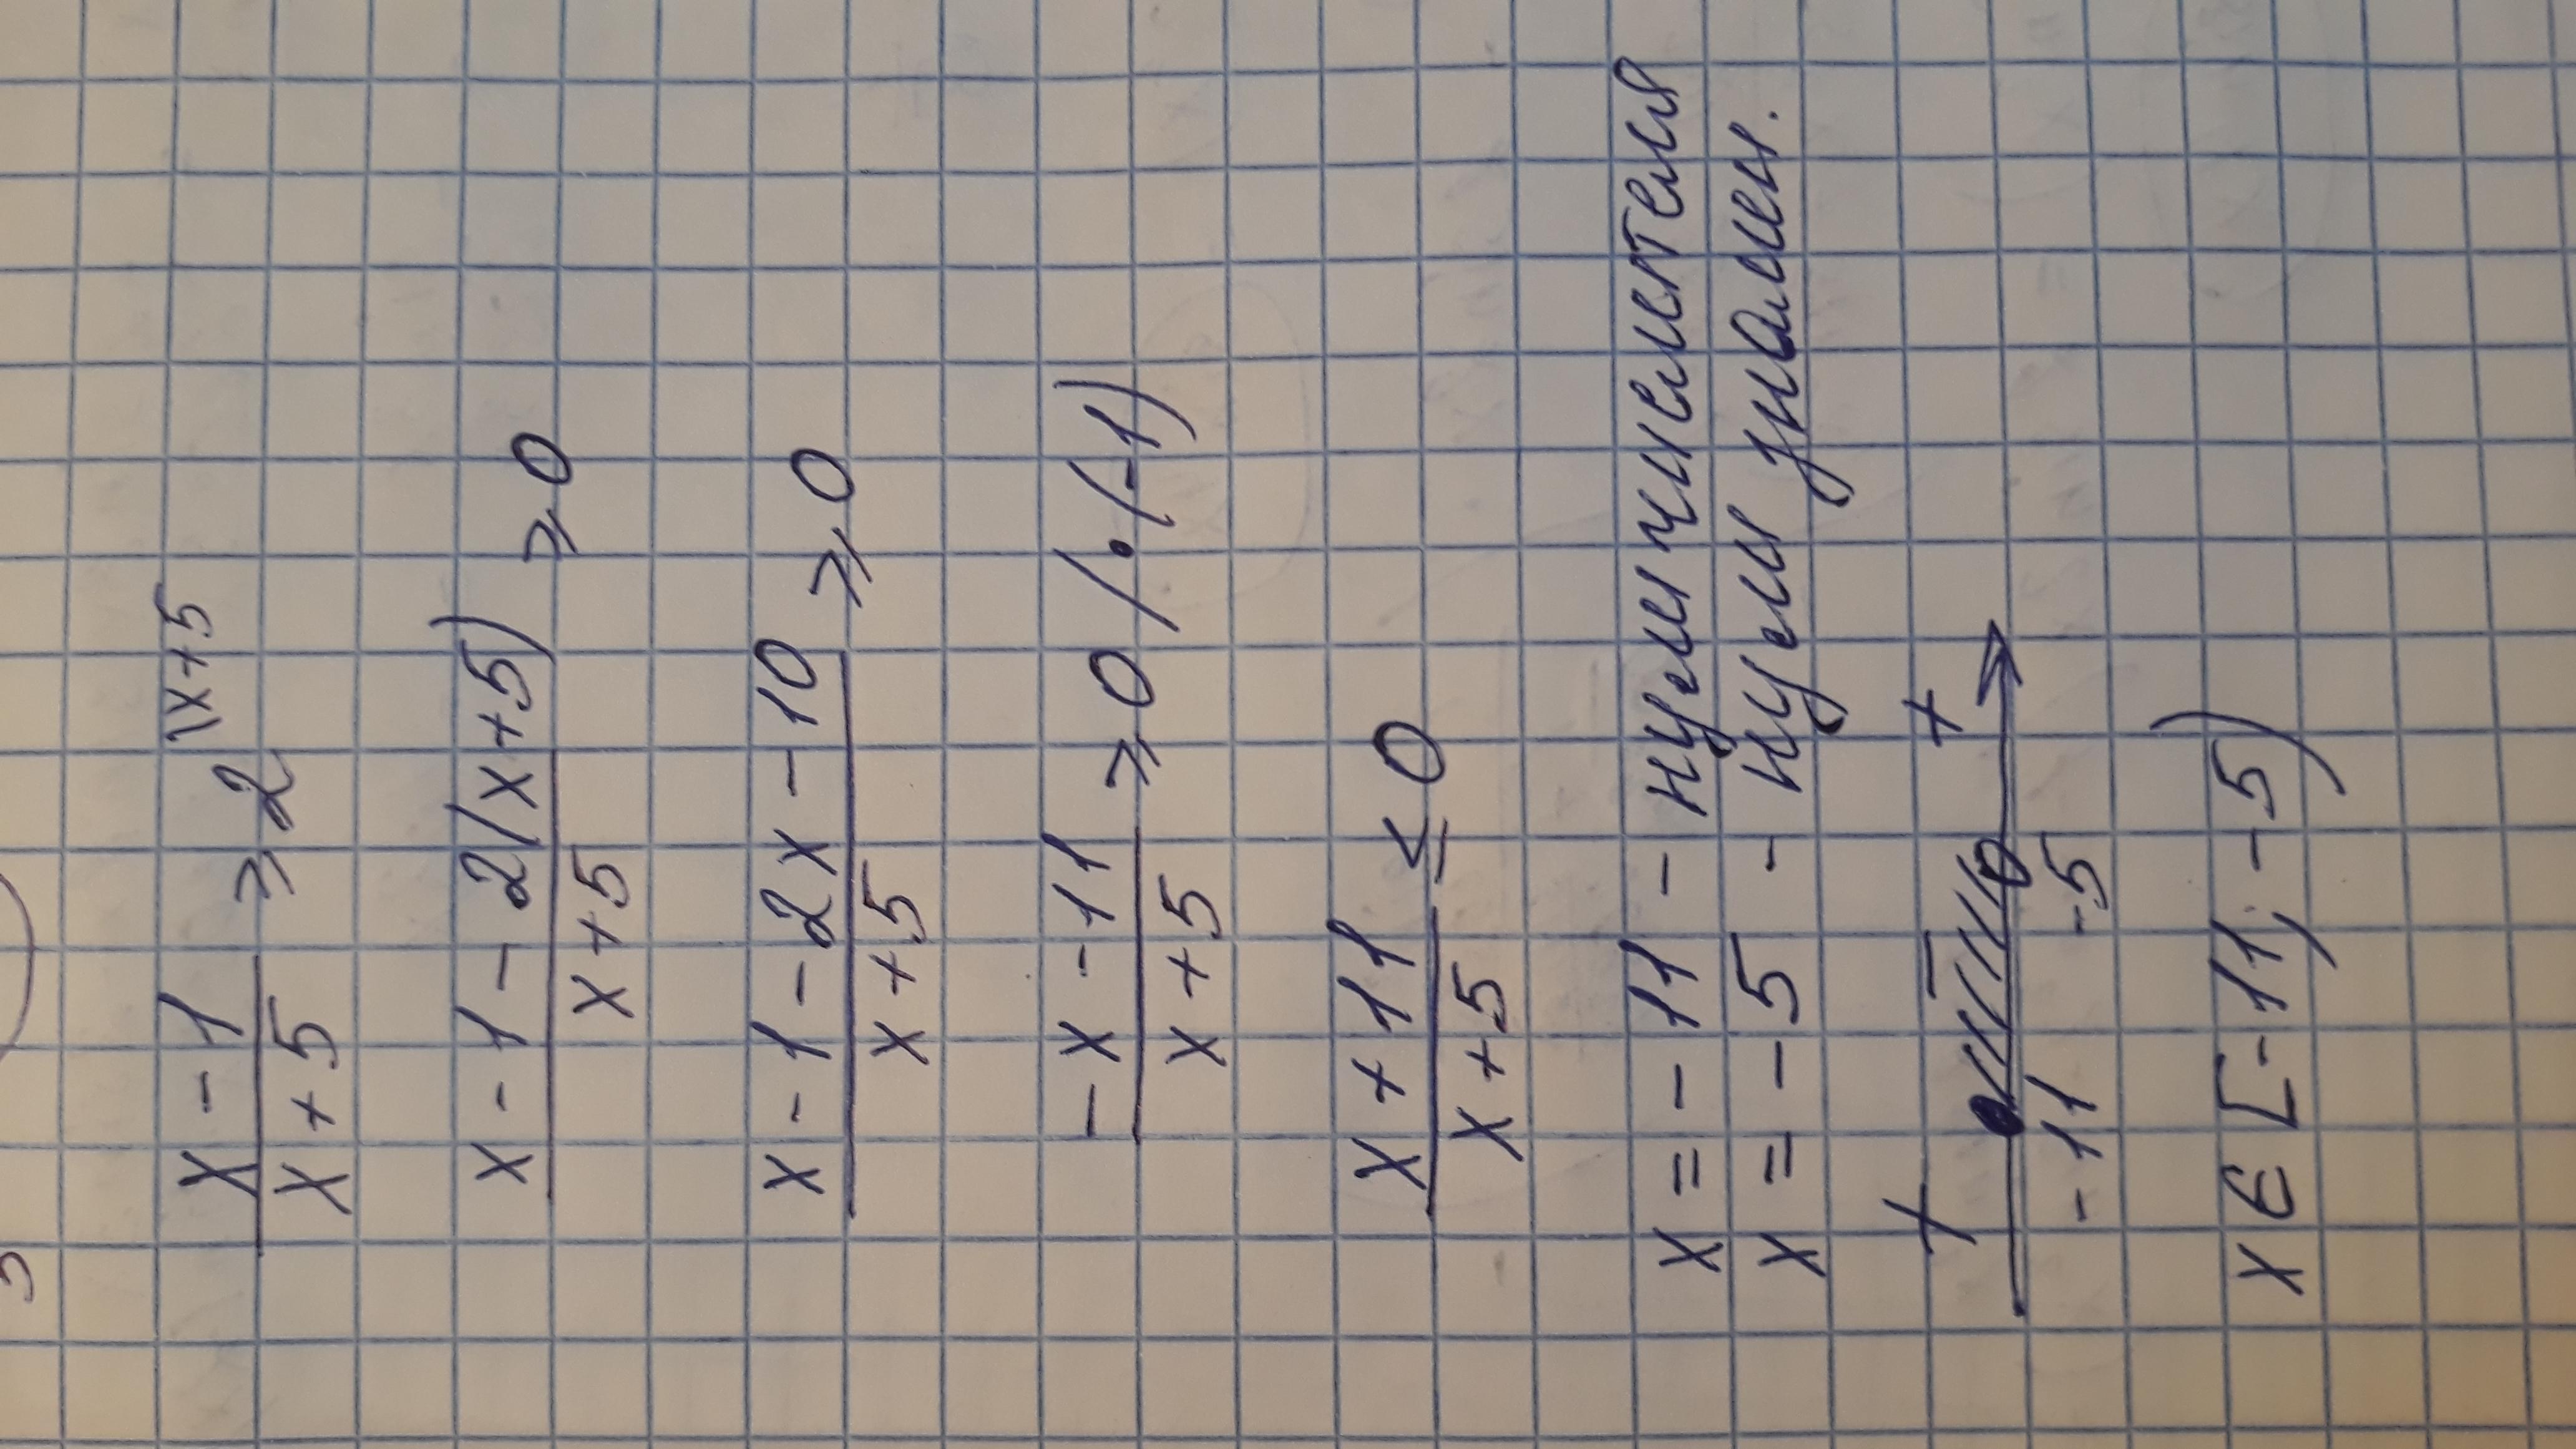 x-1/x+5 ⩾ 2 \x+5
x-1-2(x+5)/x+5 ⩾ 0
x-1-2x-10/x+5 ⩾ 0
-x-11/x+5 ⩾ 0 /·(-1)
x+11/x+5 ≤ 0
x=-11 - нули числителя
x=-5 - нули знамен.
+ - +
-11 -5
x∈[-11;-5)